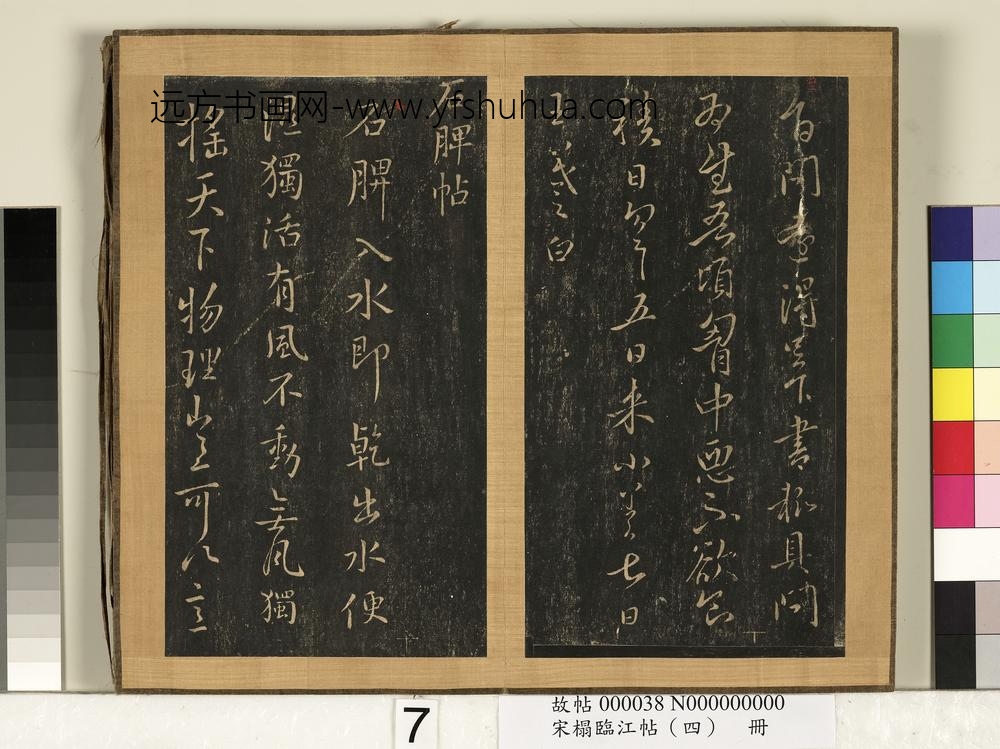 得足下書 具問
為生吾頃胷中惡不欲食
積日勾下五日來小差七日
王羲之白
石脾帖
石脾入水即乾出水便
濕獨活有風不動無風獨
搖天下物理豈可以意
远方书画网-www.yfshuhua.com
7
故帖 000038 N000000000
宋榻臨江帖（四） 冊